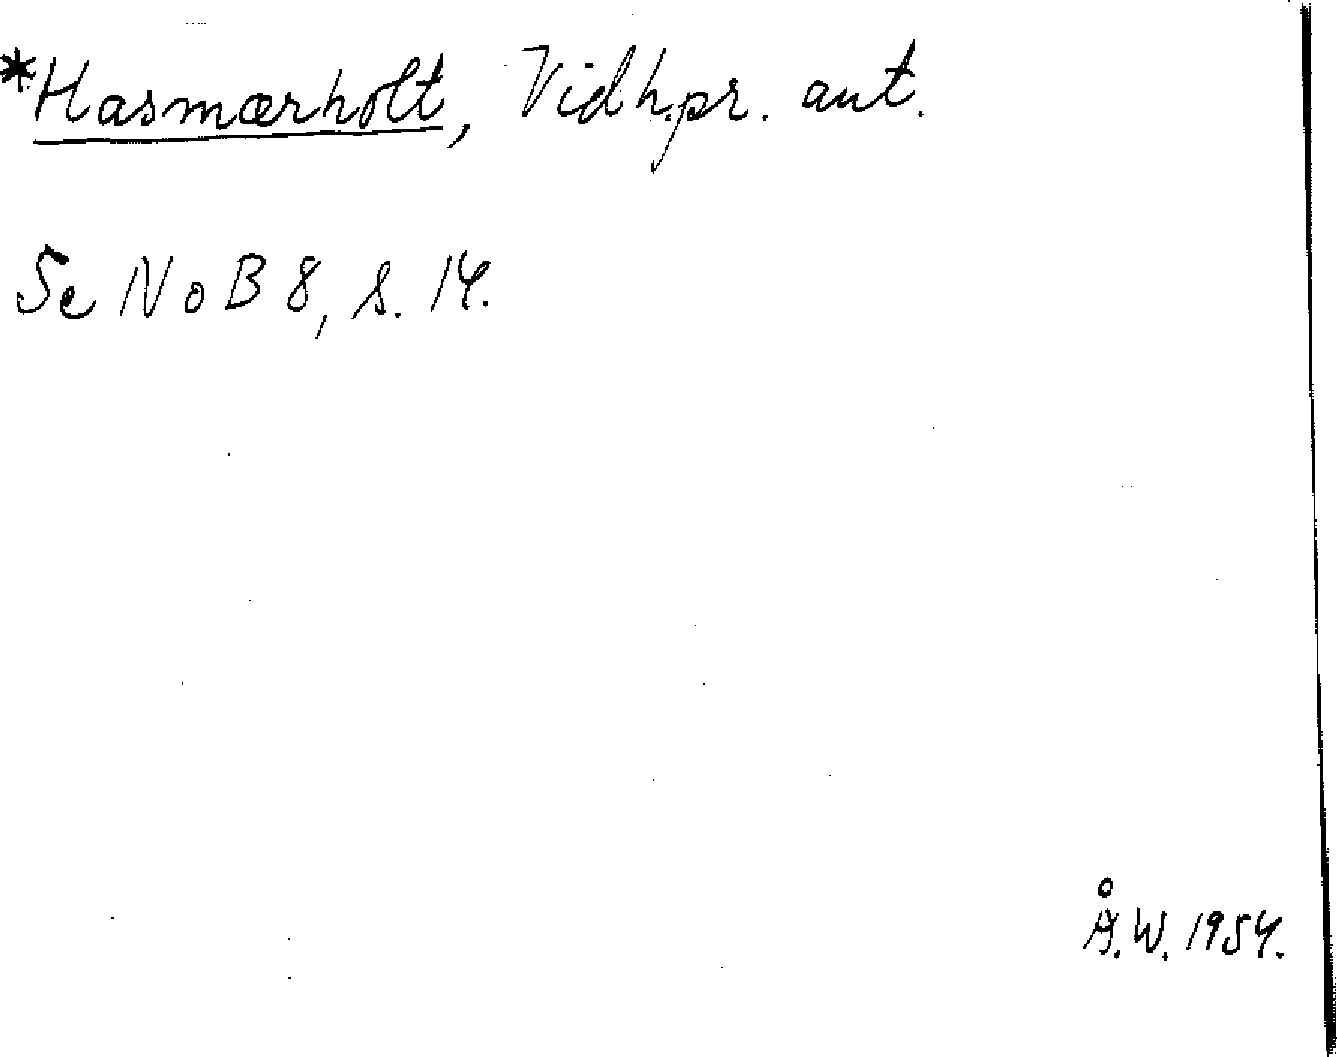 *Hasmærholt, Vidh.pr. ant.
Se NoB 8, s. 14.
Å.W. 1954.